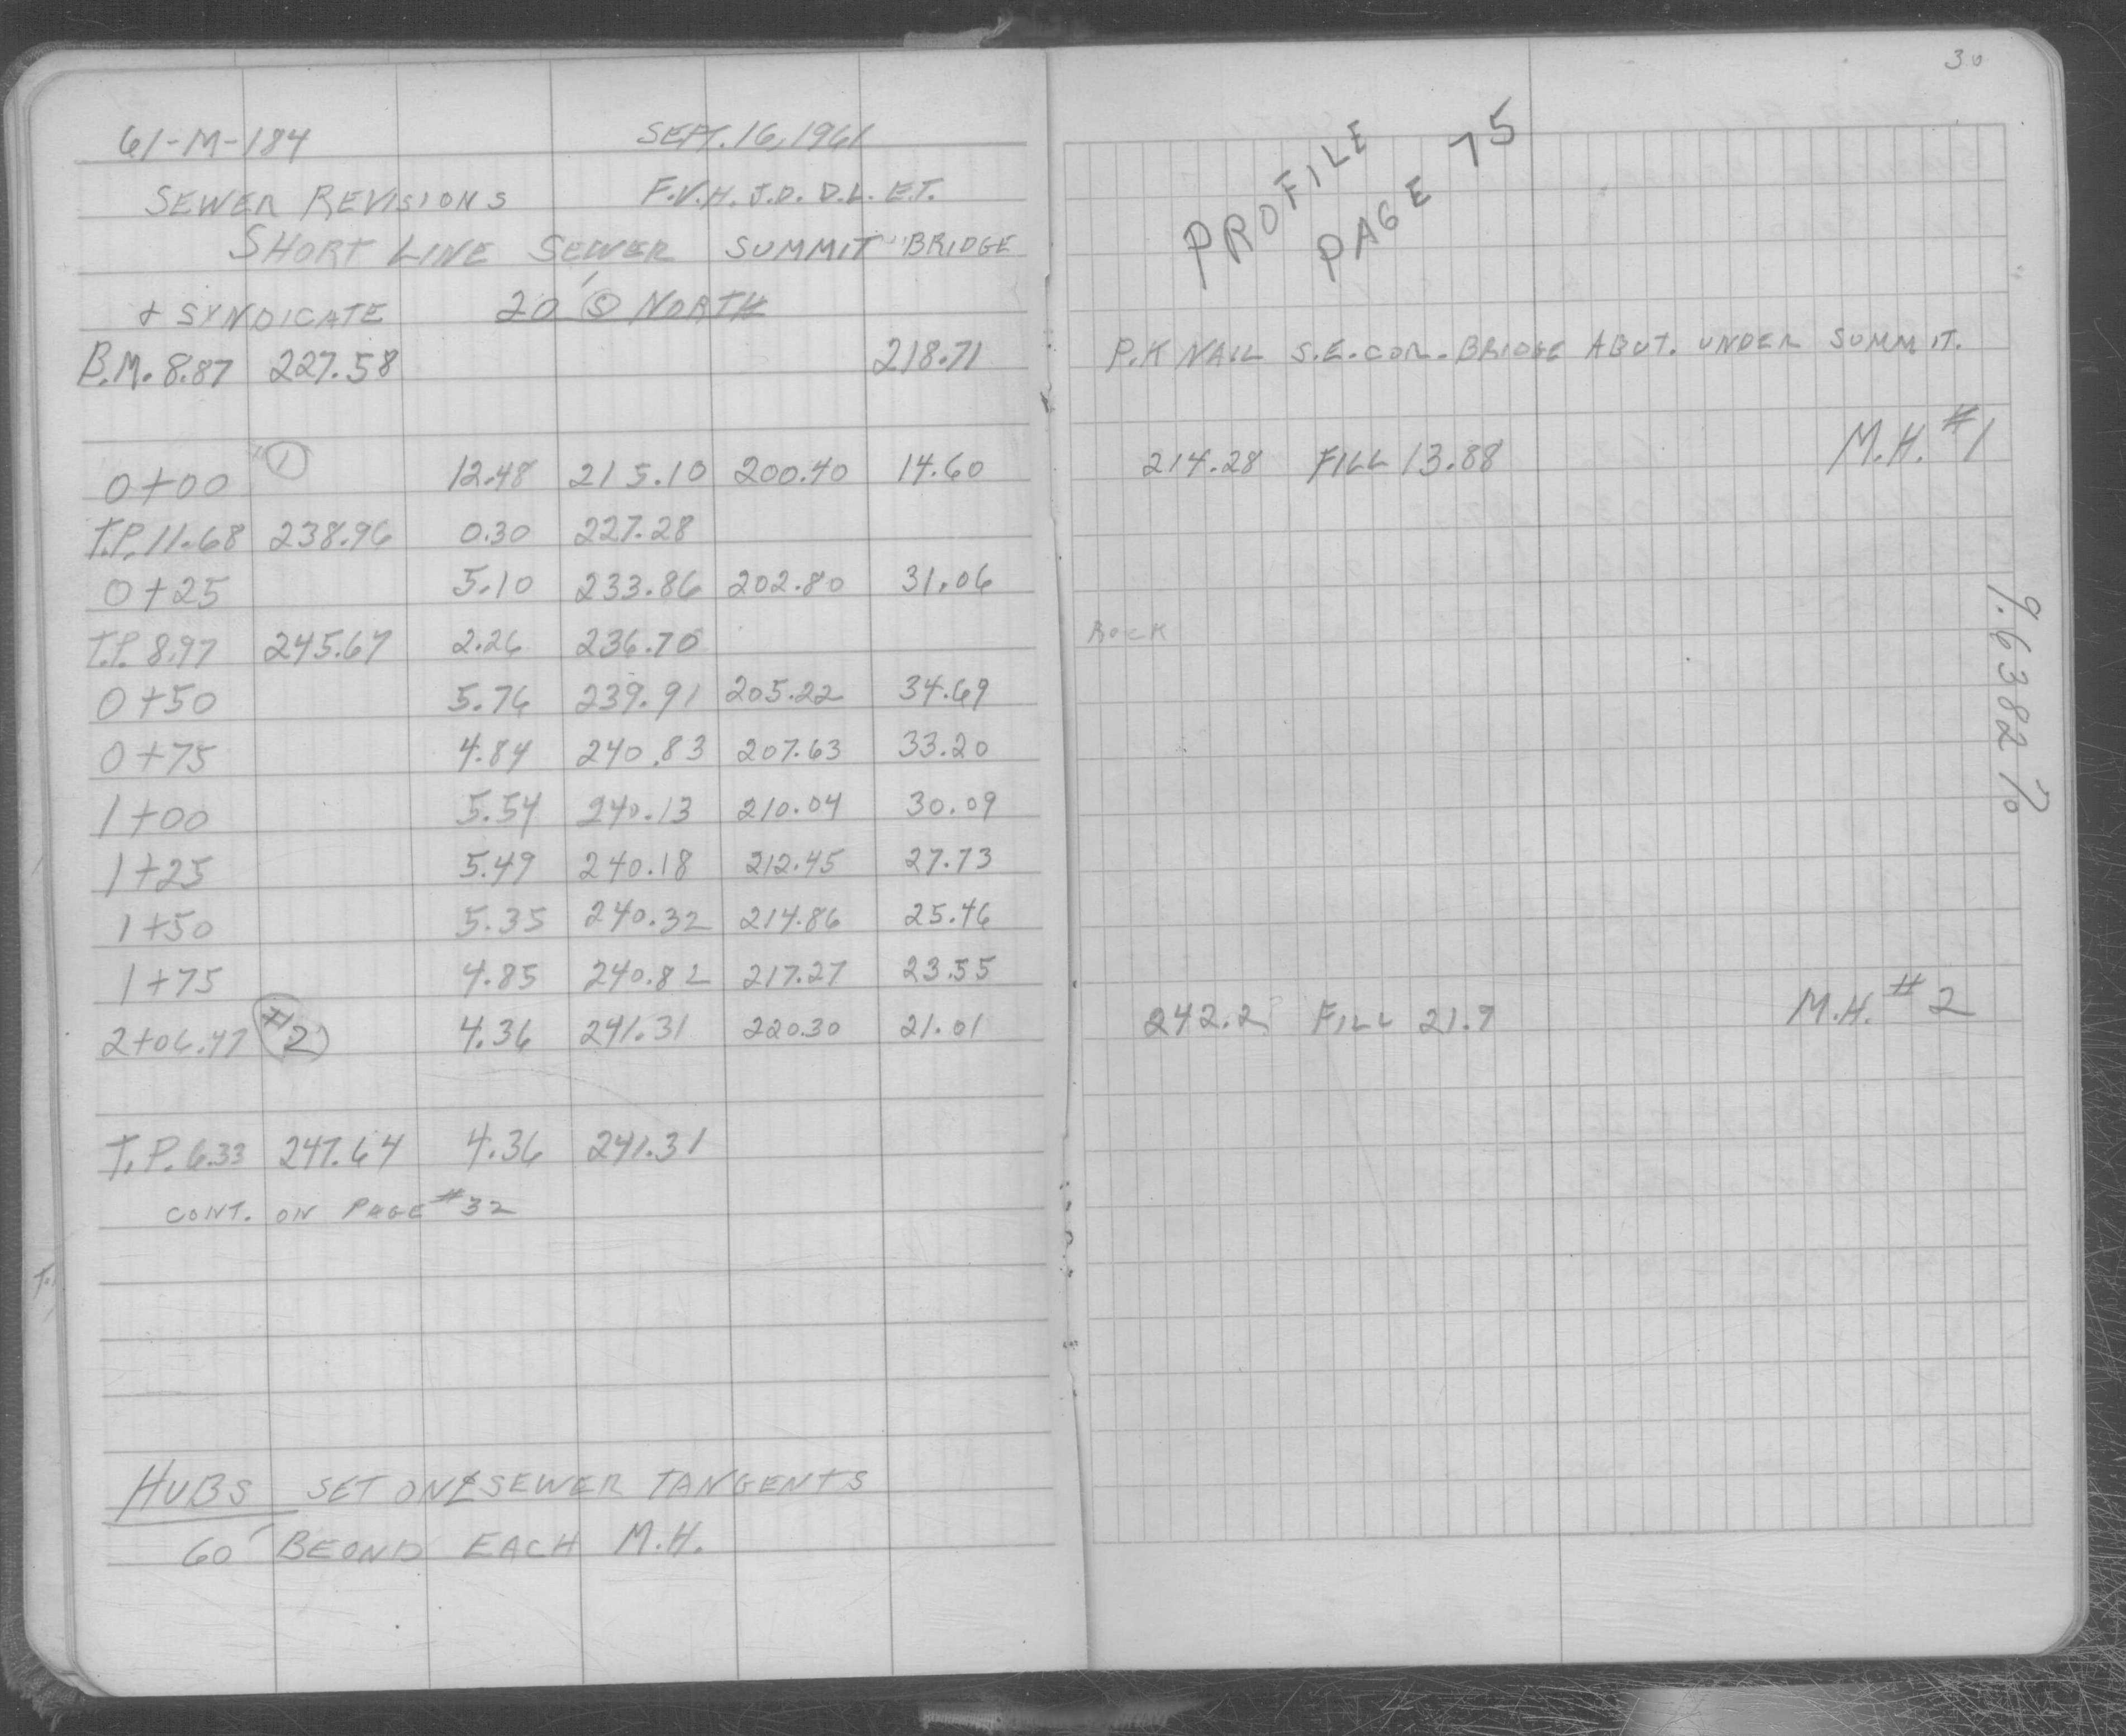 61-M-184 SEPT. 16, 1961
SEWER REVISIONS F.V.H. J.D. D.L. E.T.
SHORT LINE SEWER SUMMIT BRIDGE
+ SYNDICATE 20' Ⓢ NORTH
B.M. 8.87 227.58 218.71
0+00 ① 12.48 215.10 200.40 14.60
T.P. 11.68 238.96 0.30 227.28
0+25 5.10 233.86 202.80 31.06
T.P. 8.97 245.67 2.26 236.70
0+50 5.76 239.91 205.22 34.69
0+75 4.84 240.83 207.63 33.20
1+00 5.54 240.13 210.04 30.09
1+25 5.49 240.18 212.45 27.73
1+50 5.35 240.32 214.86 25.46
1+75 4.85 240.82 217.27 23.55
2+06.47 #2 4.36 241.31 220.30 21.01
T.P. 6.33 247.64 4.36 241.31
CONT. ON PAGE #32
HUBS SET ON ℄ SEWER TANGENTS
60' BEOND EACH M.H.
30
PROFILE
PAGE 75
P.K NAIL S.E. COR. BRIDGE ABUT. UNDER SUMMIT.
214.28 FILL 13.88 M.H. #1
ROCK
9.6382 %
242.2 FILL 21.9 M.H. #2